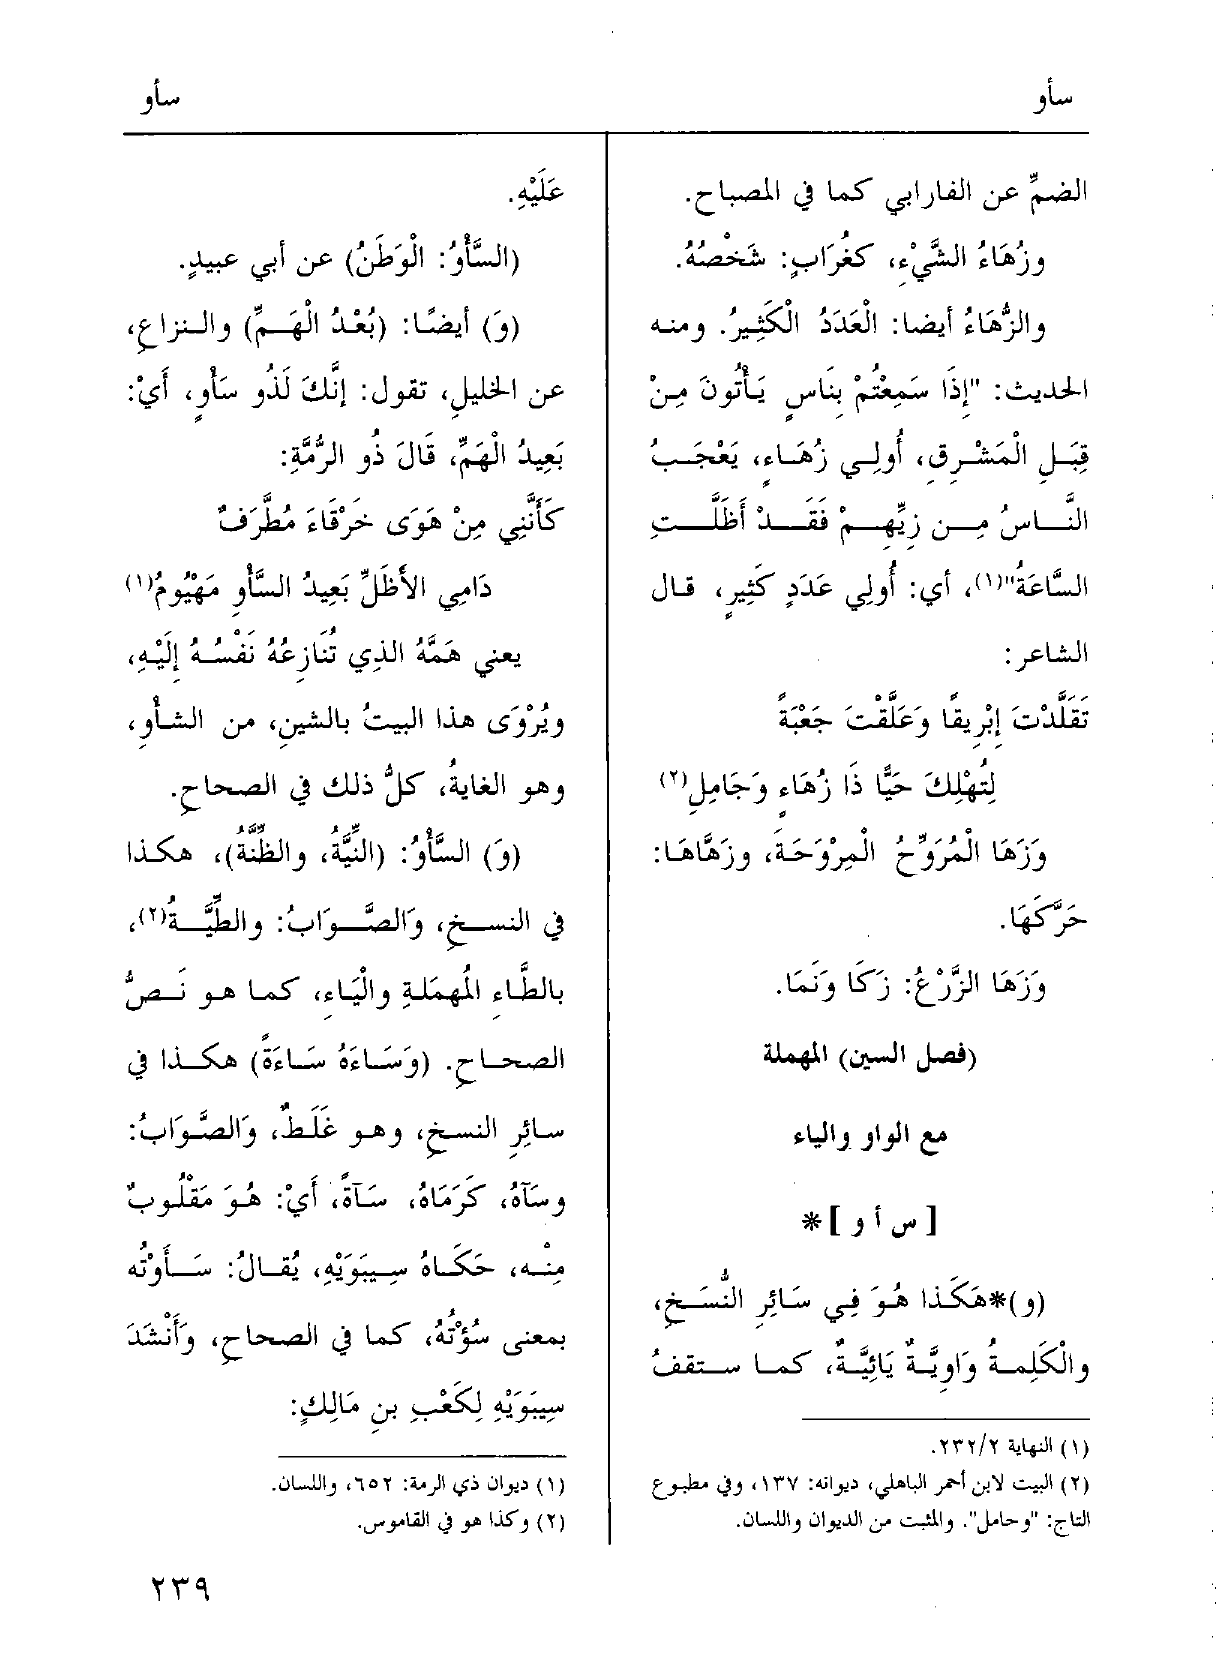 سأو
سأو
الضمِّ عن الفارابي كما في المصباح.
وزُهَاءُ الشَّيْءِ، كغُرَابٍ: شَخْصُهُ.
والزُّهَاءُ أيضا: الْعَدَدُ الْكَثِيرُ. ومنه
الحديث: "إِذَا سَمِعْتُمْ بِنَاسٍ يَأْتُونَ مِنْ
قِبَلِ الْمَشْرِقِ، أُولِي زُهَاءٍ، يَعْجَبُ
النَّاسُ مِن زِيِّهِمْ فَقَدْ أَظَلَّتِ
السَّاعَةُ"(١)، أي: أُولِي عَدَدٍ كَثِيرٍ، قال
الشاعر:
تَقَلَّدْتَ إِبْرِيقًا وَعَلَّقْتَ جَعْبَةً
لِتُهْلِكَ حَيًّا ذَا زُهَاءٍ وَجَامِلِ(٢)
وَزَهَا الْمُرَوِّحُ الْمِرْوَحَةَ، وزَهَّاهَا:
حَرَّكَهَا.
وَزَهَا الزَّرْعُ: زَكَا وَنَمَا.
(فصل السين) المهملة
مع الواو والياء
[ س أ و ]*
(و)*هَكَذا هُوَ فِي سَائِرِ النُّسَخِ،
والْكَلِمةُ وَاوِيَّةٌ يَائِيَّةٌ، كما ستقفُ
(١) النهاية ٢/ ٢٣٢.
(٢) البيت لابن أحمر الباهلي، ديوانه: ١٣٧، وفي مطبوع
التاج: "وحامل". والمثبت من الديوان واللسان.
عَلَيْهِ.
(السَّأْوُ: الْوَطَنُ) عن أبي عبيدٍ.
(وَ) أيضًا: (بُعْدُ الْهَمِّ) والنزاعِ،
عن الخليلِ، تقول: إِنَّكَ لَذُو سَأْوٍ، أَيْ:
بَعِيدُ الْهَمِّ، قَالَ ذُو الرُّمَّةِ:
كَأَنَّنِي مِنْ هَوَى خَرْقَاءَ مُطَّرَفٌ
دَامِي الأَظَلِّ بَعِيدُ السَّأْوِ مَهْيُومُ(١)
يعني هَمَّهُ الذِي تُنَازِعُهُ نَفْسُهُ إِلَيْهِ،
ويُرْوَى هذا البيتُ بالشينِ، من الشأْوِ،
وهو الغايةُ، كلُّ ذلك في الصحاحِ.
(وَ) السَّأْوُ: (النِّيَّةُ، والظِّنَّةُ)، هكذا
في النسخِ، وَالصَّوَابُ: والطِّيَّةُ(٢)،
بالطَّاءِ المُهمَلةِ والْيَاءِ، كما هو نَصُّ
الصحاحِ. (وَسَاءَهُ سَاءَةً) هكذا في
سائرِ النسخِ، وهو غَلَطٌ، وَالصَّوَابُ:
وسَآهُ، كَرَمَاهُ، سَآةً، أَيْ: هُوَ مَقْلُوبٌ
مِنْه، حَكَاهُ سِيبَوَيْهِ، يُقَالُ: سَأَوْتُه
بمعنى سُؤْتُهُ، كما في الصحاحِ، وَأَنْشَدَ
سِيبَوَيْهِ لِكَعْبِ بنِ مَالِكٍ:
(١) ديوان ذي الرمة: ٦٥٢، واللسان.
(٢) وكذا هو في القاموس.
٢٣٩